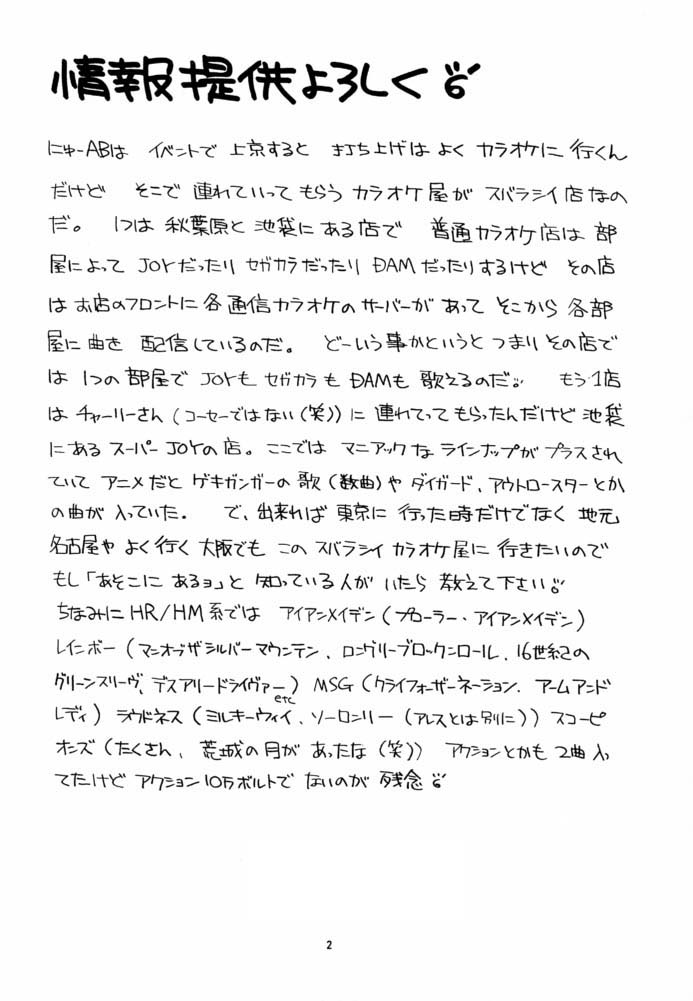 情報提供よろしく
にゅーABは イベントで 上京すると 打ち上げは よく カラオケに 行くん
だけど そこで 連れていって もらう カラオケ屋が スバラシイ店なの
だ。 1つは 秋葉原と 池袋に ある店で 普通カラオケ店は 部
屋によって JOYだったり セガカラだったり DAMだったりするけど その店
は お店のフロントに 各通信カラオケのサーバーが あって そこから 各部
屋に 曲を 配信しているのだ。 どーいう事かというと つまり その店で
は 1つの 部屋で JOYも セガカラも DAMも 歌えるのだ。 もう1店
は チャーリーさん (コーセーではない(笑))に 連れてって もらったんだけど 池袋
にある スーパーJOYの店。ここでは マニアックな ラインナップが プラスされ
ていて アニメだと ゲキガンガーの 歌(数曲)や ダイガード、アウトロースターとか
の曲が 入っていた. で、出来れば 東京に 行った時だけでなく 地元
名古屋や よく行く 大阪でも この スバラシイ カラオケ屋に 行きたいので
もし「あそこに あるョ」と 知っている人が いたら 教えて下さい
ちなみに HR/HM系では アイアンメイデン(プローラー、アイアンメイデン)
レインボー(マンオブザシルバーマウンテン、ロングリーブロックンロール、16世紀の
グリーンスリーヴ、デスアリードライヴァー etc) MSG(クライフォーザーネーション. アームアンド
レディ) ラウドネス(ミルキーウィイ、ソーロンリー(アレスとは別に)) スコーピ
オンズ(たくさん、荒城の月が あったな(笑)) アクションとかも 2曲 入っ
てたけど アクション10万ボルトで ないのが 残念
2